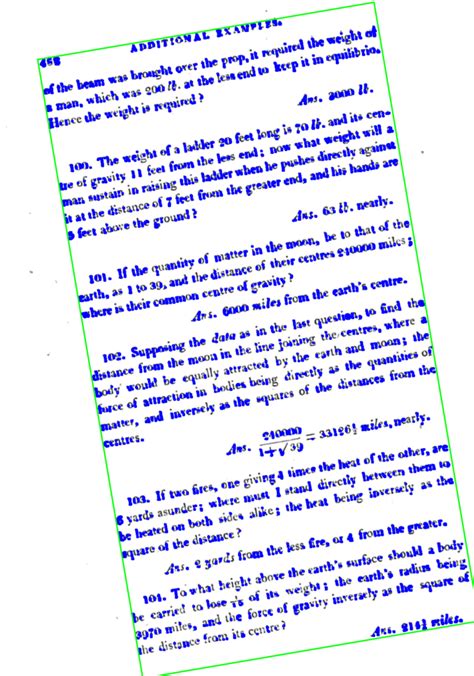 468 ADDITIONAL EXAMPLES.
of the beam was brought over the prop, it required the weight of
a man, which was 200 lb. at the less end to keep it in equilibrio.
Hence the weight is required?
Ans. 3000 lb.
100. The weight of a ladder 20 feet long is 70 lb. and its cen-
tre of gravity 11 feet from the less end; now what weight will a
man sustain in raising this ladder when he pushes directly against
it at the distance of 7 feet from the greater end, and his hands are
5 feet above the ground?
Ans. 63 lb. nearly.
101. If the quantity of matter in the moon, be to that of the
earth, as 1 to 39, and the distance of their centres 240000 miles;
where is their common centre of gravity?
Ans. 6000 miles from the earth's centre.
102. Supposing the data as in the last question, to find the
distance from the moon in the line joining the centres, where a
body would be equally attracted by the earth and moon; the
force of attraction in bodies being directly as the quantities of
matter, and inversely as the squares of the distances from the
centres.
Ans. 240000 / 1+√39 = 33126½ miles, nearly.
103. If two fires, one giving 4 times the heat of the other, are
6 yards asunder; where must I stand directly between them to
be heated on both sides alike; the heat being inversely as the
square of the distance?
Ans. 2 yards from the less fire, or 4 from the greater.
104. To what height above the earth's surface should a body
be carried to lose of its weight; the earth's radius being
3970 miles, and the force of gravity inversely as the square of
the distance from its centre?
Ans. miles.